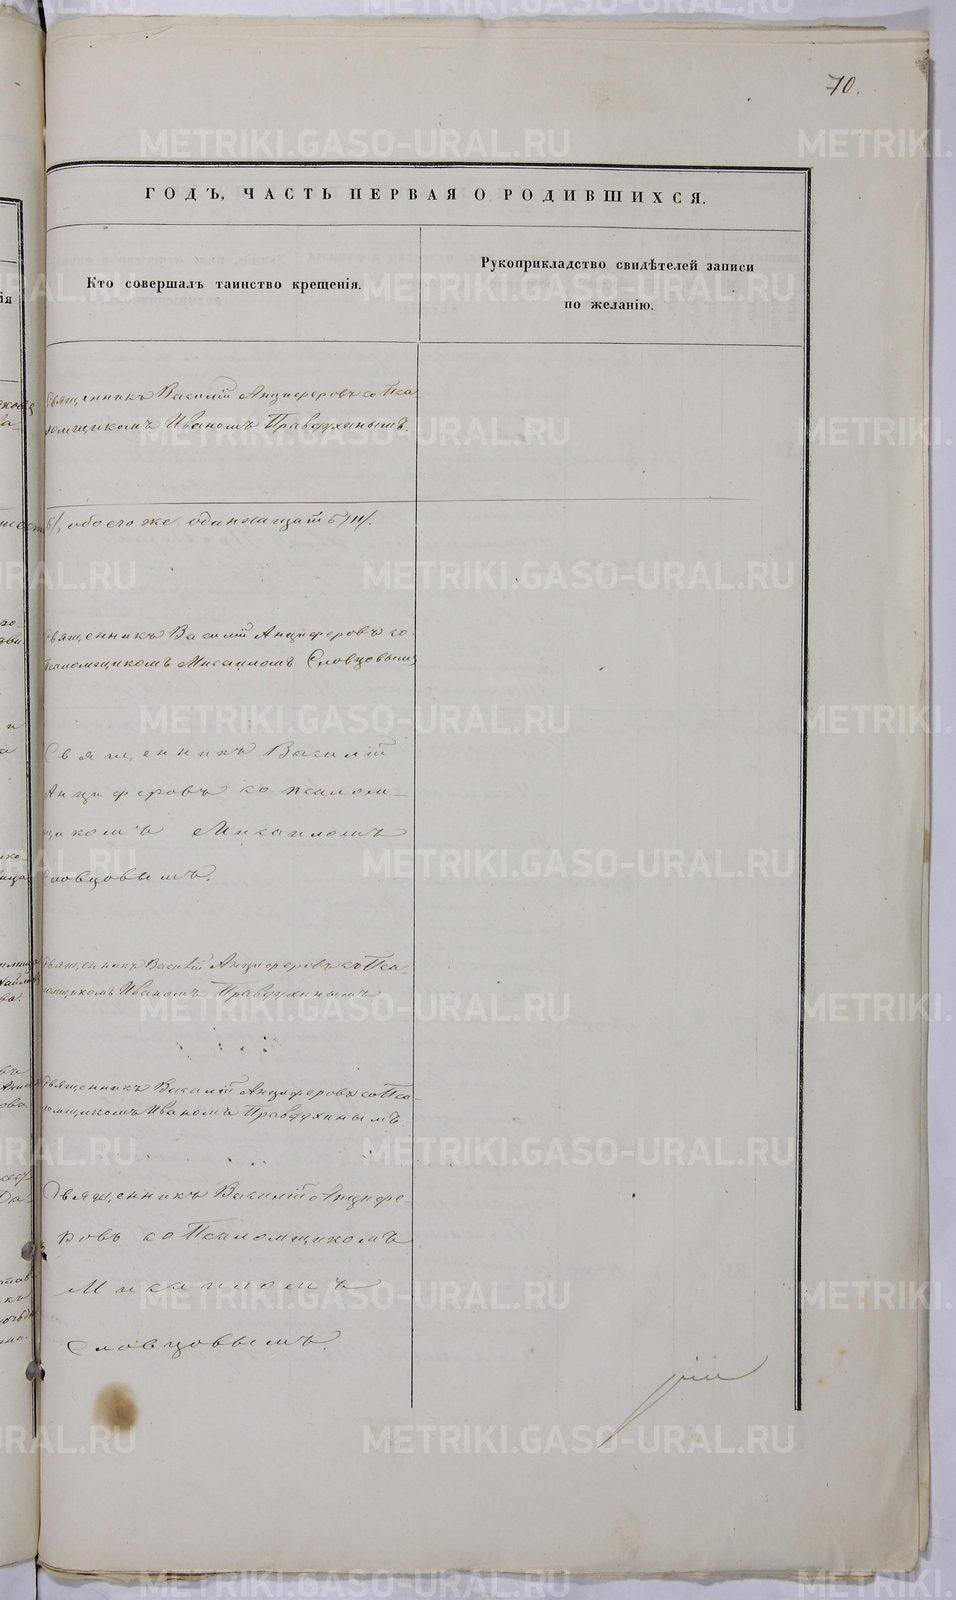 70.
ГОДЪ, ЧАСТЬ ПЕРВАЯ О РОДИВШИХСЯ.
Кто совершалъ таинство крещенія.
Рукоприкладство свидѣтелей записи
по желанію.
Священникъ Василій Анциферовъ со Пса
ломщикомъ Иваномъ Правдухинымъ.
обоего же одиннадцать /11/.
Священникъ Василій Анциферовъ со
Псаломщикомъ Михаиломъ Словцовымъ
Священникъ Василій
Анциферовъ со псалом-
щикомъ Михаиломъ
Словцовымъ.
Священникъ Василій Анциферовъ съ Пса-
ломщикомъ Иваномъ Правдухинымъ
Священникъ Василій Анциферовъ со Пса-
ломщикомъ Иваномъ Правдухинымъ.
Священникъ Василій Анцифе-
ровъ со Псаломщикомъ
Михаиломъ
Словцовымъ.
METRIKI.GASO-URAL.RU